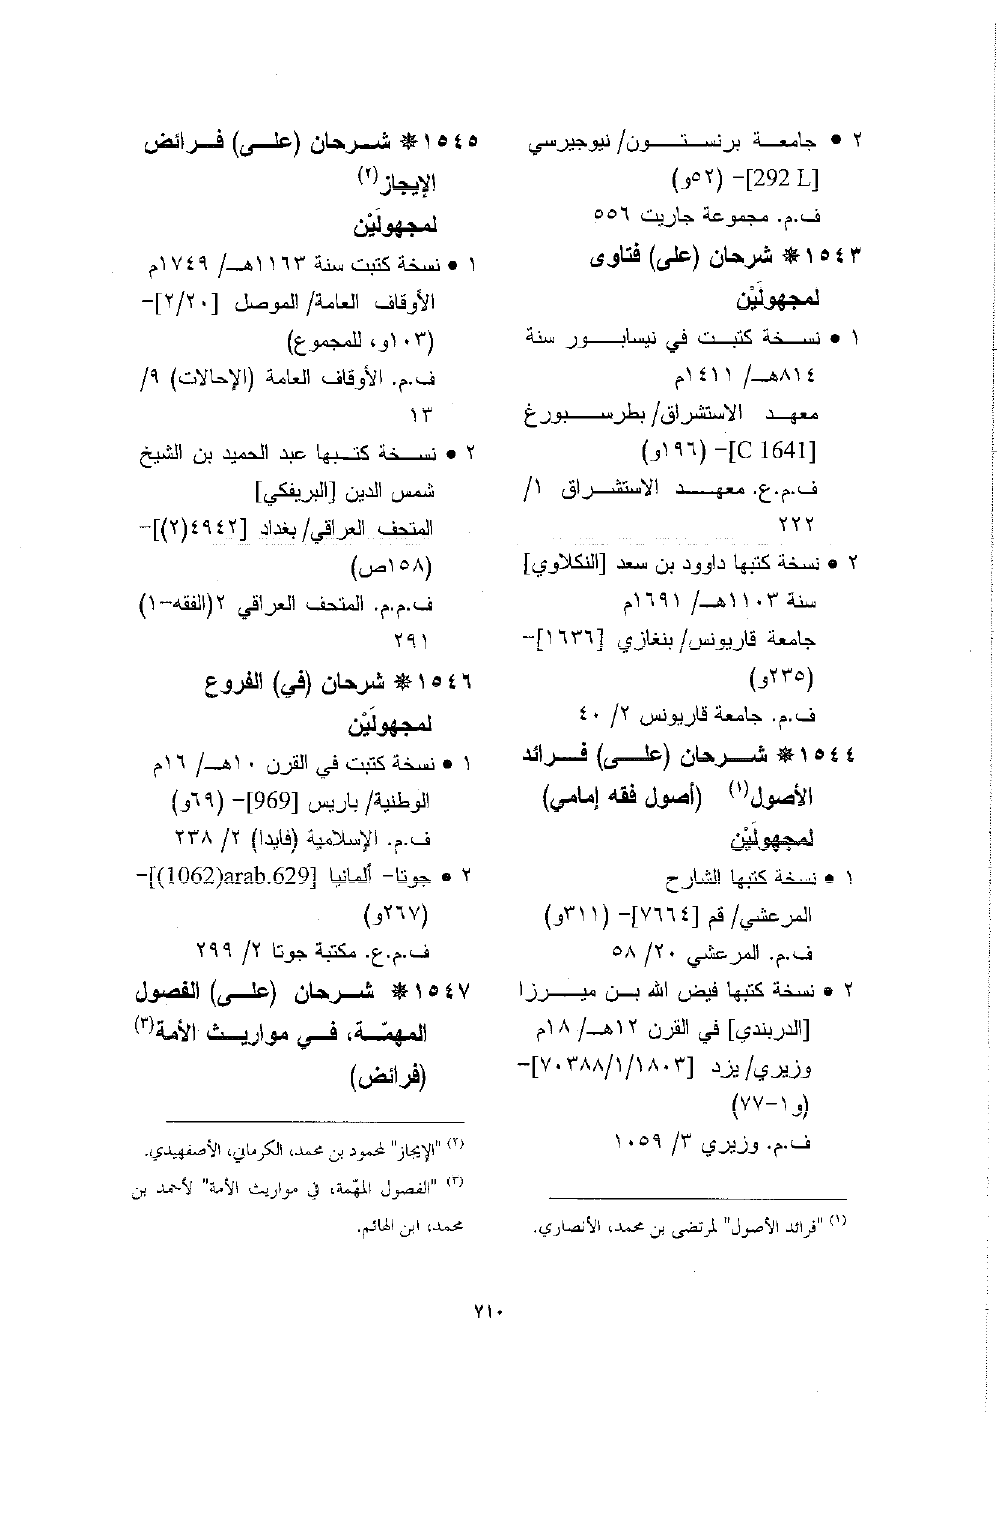 ٢ • جامعة برنستون/ نيوجيرسي
[292 L]- (٥٢و)
ف.م. مجموعة جاريت ٥٥٦
١٥٤٣* شرحان (على) فتاوى
لمجهولَيْن
١ • نسخة كتبت في نيسابور سنة
٨١٤هـ/ ١٤١١م
معهد الاستشراق/ بطرسبورغ
[C 1641]- (١٩٦و)
ف.م.ع. معهد الاستشراق ١/
٢٢٢
٢ • نسخة كتبها داوود بن سعد [النكلاوي]
سنة ١١٠٣هـ/ ١٦٩١م
جامعة قاريونس/ بنغازي [١٦٣٦]-
(٢٣٥و)
ف.م. جامعة قاريونس ٢/ ٤٠
١٥٤٤* شرحان (على) فرائد
الأصول(١) (أصول فقه إمامي)
لمجهولَيْن
١ • نسخة كتبها الشارح
المرعشي/ قم [٧٦٦٤]- (٣١١و)
ف.م. المرعشي ٢٠/ ٥٨
٢ • نسخة كتبها فيض الله بن ميرزا
[الدربندي] في القرن ١٢هـ/ ١٨م
وزيري/ يزد [٧٠٣٨٨/١/١٨٠٣]-
(و١-٧٧)
ف.م. وزيري ٣/ ١٠٥٩
(١) "فرائد الأصول" لمرتضى بن محمد، الأنصاري.
١٥٤٥* شرحان (على) فرائض
الإيجاز(٢)
لمجهولَيْن
١ • نسخة كتبت سنة ١١٦٣هـ/ ١٧٤٩م
الأوقاف العامة/ الموصل [٢/٢٠]-
(١٠٣و، للمجموع)
ف.م. الأوقاف العامة (الإحالات) ٩/
١٣
٢ • نسخة كتبها عبد الحميد بن الشيخ
شمس الدين [البريفكي]
المتحف العراقي/ بغداد [٤٩٤٢(٢)]-
(١٥٨ص)
ف.م.م. المتحف العراقي ٢(الفقه-١)
٢٩١
١٥٤٦* شرحان (في) الفروع
لمجهولَيْن
١ • نسخة كتبت في القرن ١٠هـ/ ١٦م
الوطنية/ باريس [969]- (٦٩و)
ف.م. الإسلامية (فايدا) ٢/ ٢٣٨
٢ • جوتا- ألمانيا [arab.629(1062)]-
(٢٦٧و)
ف.م.ع. مكتبة جوتا ٢/ ٢٩٩
١٥٤٧* شرحان (على) الفصول
المهمّة، في مواريث الأمة(٣)
(فرائض)
(٢) "الإيجاز" لمحمود بن محمد، الكرماني، الأصفهيدي.
(٣) "الفصول المهّمة، في مواريث الأمة" لأحمد بن
محمد، ابن الهائم.
٧١٠